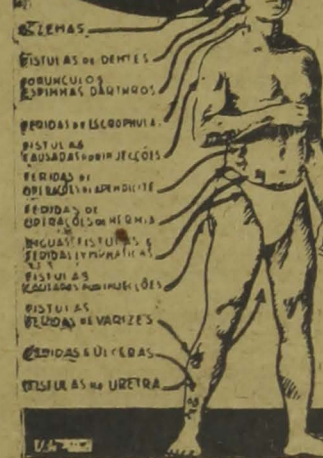 ECZEMAS
FISTULAS DE DENTES
FORUNCULOS
ESPINHAS DARTHROS
FERIDAS DE ESCROPHULA
FISTULAS
CAUSADAS POR INJECÇÕES
FERIDAS DE
OPERAÇÕES DE APENDICITE
FERIDAS DE
OPERAÇÕES DE HERNIA
INGUAS, FISTULAS E
FERIDAS LYMPHATICAS
FISTULAS
CAUSADAS POR INJECÇÕES
FISTULAS
FERIDAS DE VARIZES
FERIDAS E ÚLCERAS
FISTULAS NA URETRA